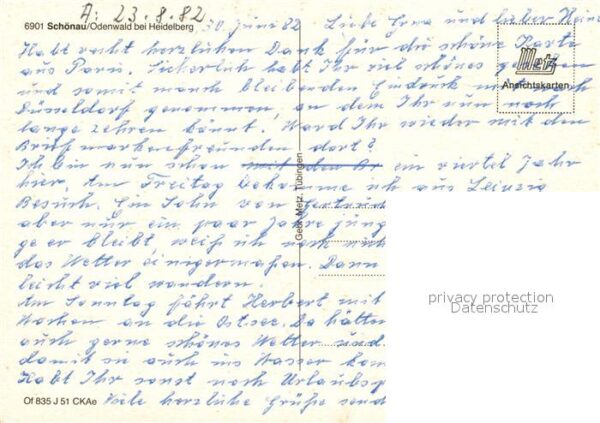 A: 23.8.82
6901 Schönau/Odenwald bei Heidelberg
30. Juni 82
Liebe Erna und lieber Hans
Habt recht herzlichen Dank für die schöne Karte
aus Paris. Sicherlich habt Ihr viel schönes
und somit manch bleibenden Eindruck mit nach
Düsseldorf genommen, an dem Ihr nun noch
lange zehren könnt. Ward Ihr wieder mit den
Briefmarkenfreunden dort?
Ich bin nun schon mit den Br ein viertel Jahr
hier. Am Freitag bekomme ich aus Leipzig
Besuch. Ein Sohn von Gertrud
aber nur ein paar Jahre jüng
ge er bleibt, weiß ich noch nich
das Wetter einigermaßen. Dann
leicht viel wandern.
Am Sonntag fährt Herbert mit
Wochen an die Ostsee. Da hätten
auch gerne schönes Wetter und
damit sie auch ins Wasser kön
Habt Ihr sonst noch Urlaubsp
Viele herzliche Grüße send
Metz
Ansichtskarten
Gebr. Metz, Tübingen
Of 835 J 51 CKAe
privacy protection
Datenschutz